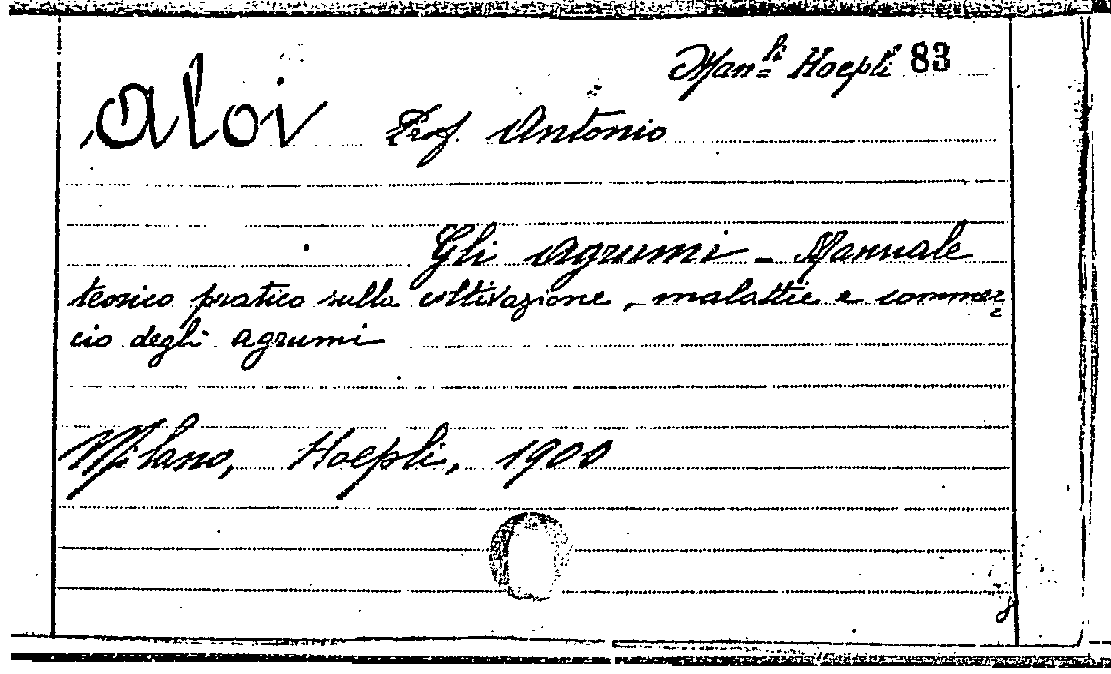 Man.li Hoepli 83
Aloi Prof. Antonio
Gli agrumi - Manuale
teorico pratico sulla coltivazione, malattie e commer=
cio degli agrumi
Milano, Hoepli, 1900